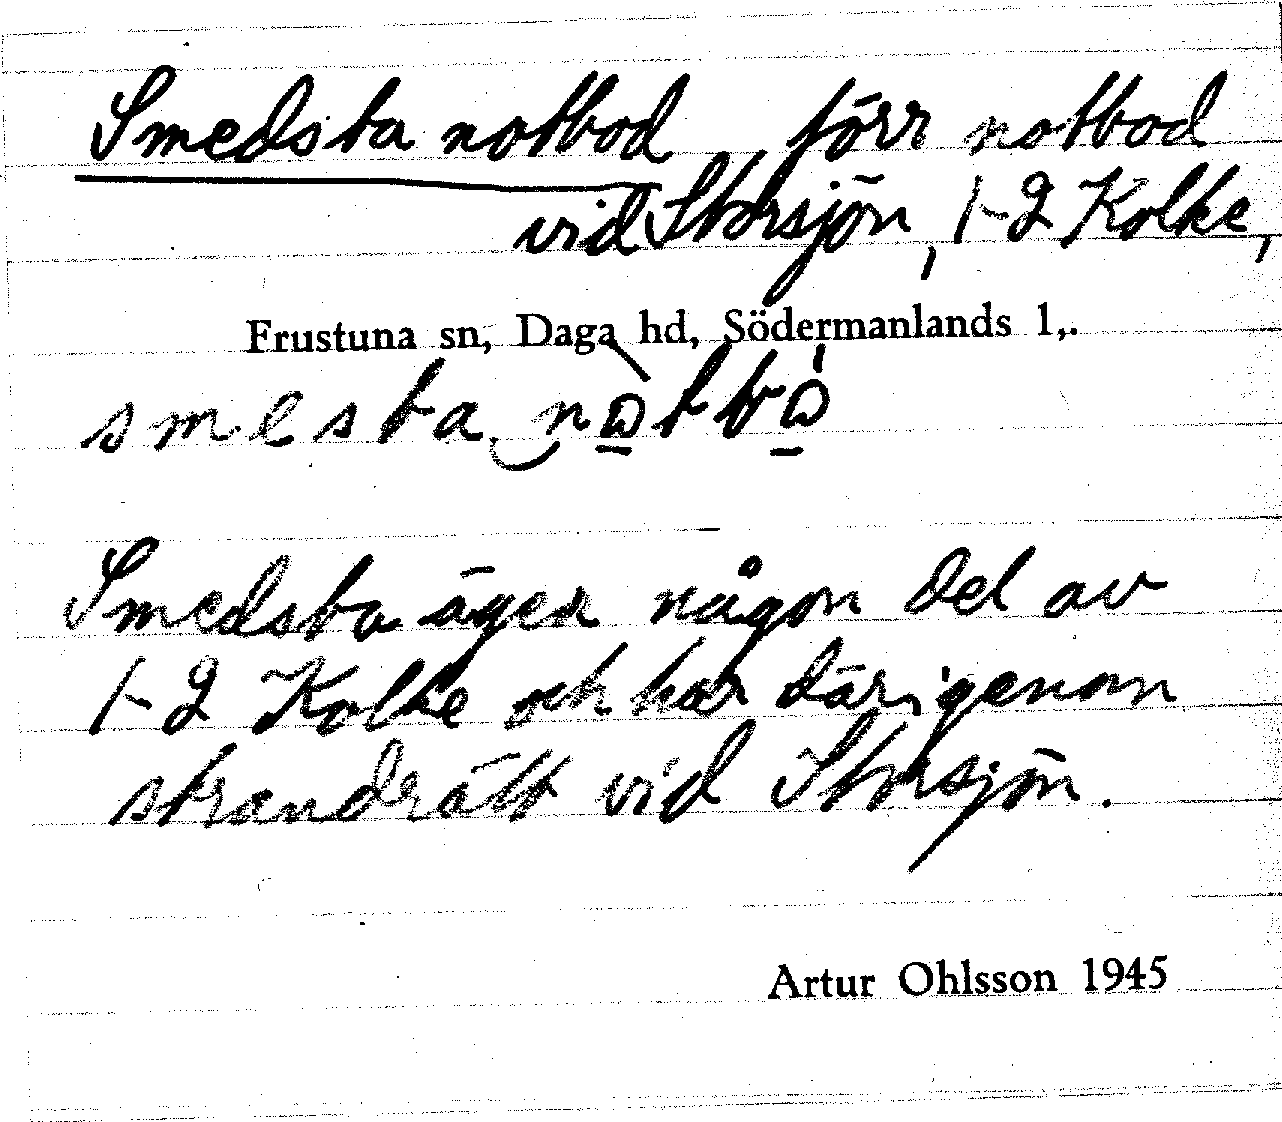 Smedsta notbod, förr notbod
vid Storsjön, 1-2 Kolke,
Frustuna sn, Daga hd, Södermanlands l,.
smesta
Smedsta äger någon del av
1-2 Kolke och har därigenom
strandrätt vid Storsjön.
Artur Ohlsson 1945